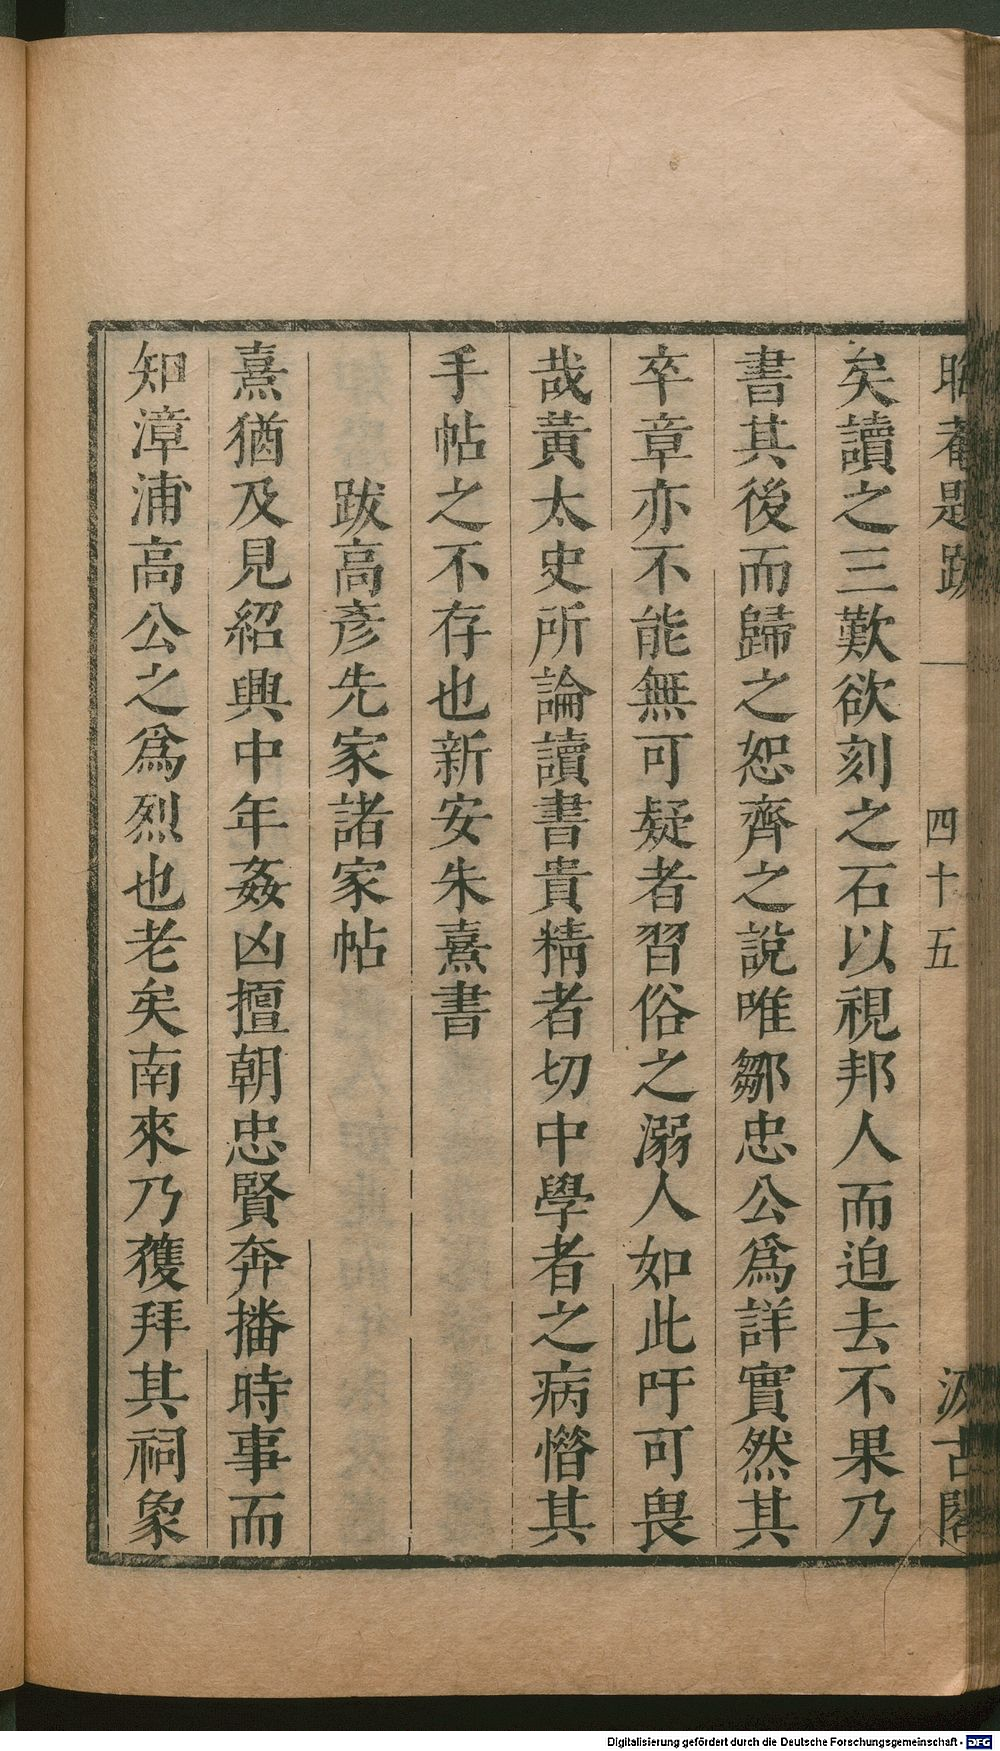 晦菴題跋 四十五 汲古閣
矣讀之三歎欲刻之石以視邦人而迫去不果乃
書其後而歸之恕齊之說唯鄒忠公爲詳實然其
卒章亦不能無可疑者習俗之溺人如此吁可畏
哉黃太史所論讀書貴精者切中學者之病憯其
手帖之不存也新安朱熹書
跋高彥先家諸家帖
熹猶及見紹興中年姦凶擅朝忠賢奔播時事而
知漳浦高公之爲烈也老矣南來乃獲拜其祠象
Digitalisierung gefördert durch die Deutsche Forschungsgemeinschaft - DFG